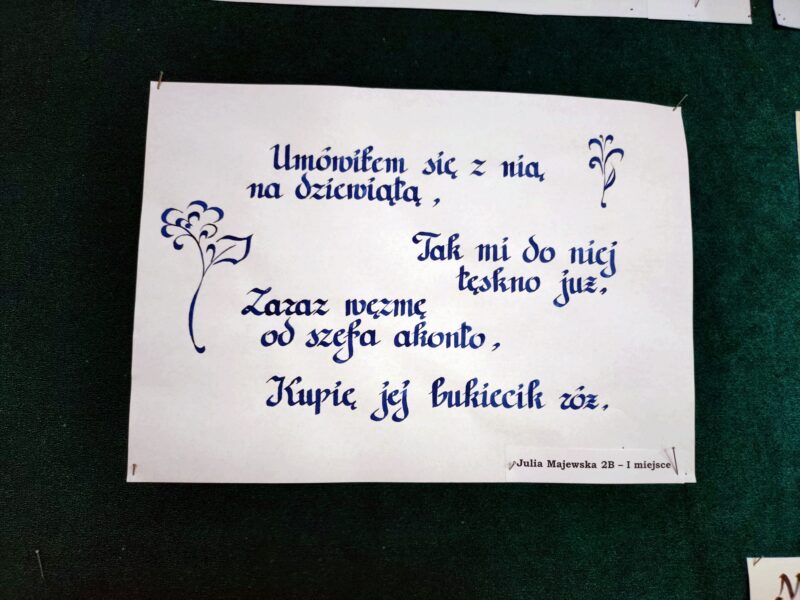 Umówiłem się z nią
na dziewiątą,
Tak mi do niej
tęskno już.
Zaraz wezmę
od szefa akonto,
Kupię jej bukiecik róż.
Julia Majewska 2B – I miejsce